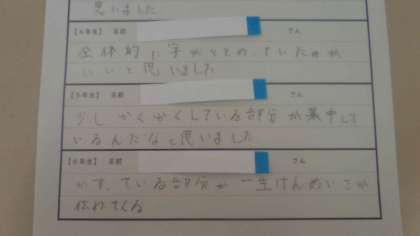 思いました
【4年生】 名前 さん
全体的に字がととのっていたのが
いいと思いました
【5年生】 名前 さん
少しかくかくしている部分が集中して
いるんだなと思いました
【6年生】 名前 さん
かすっている部分が一生けんめいさが
伝わてくる